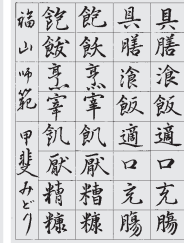 具膳湌飯適口充腸
具膳湌飯適口充腸
飽飫烹宰飢厭糟糠
飽飫烹宰飢厭糟糠
福山師範 甲斐みどり